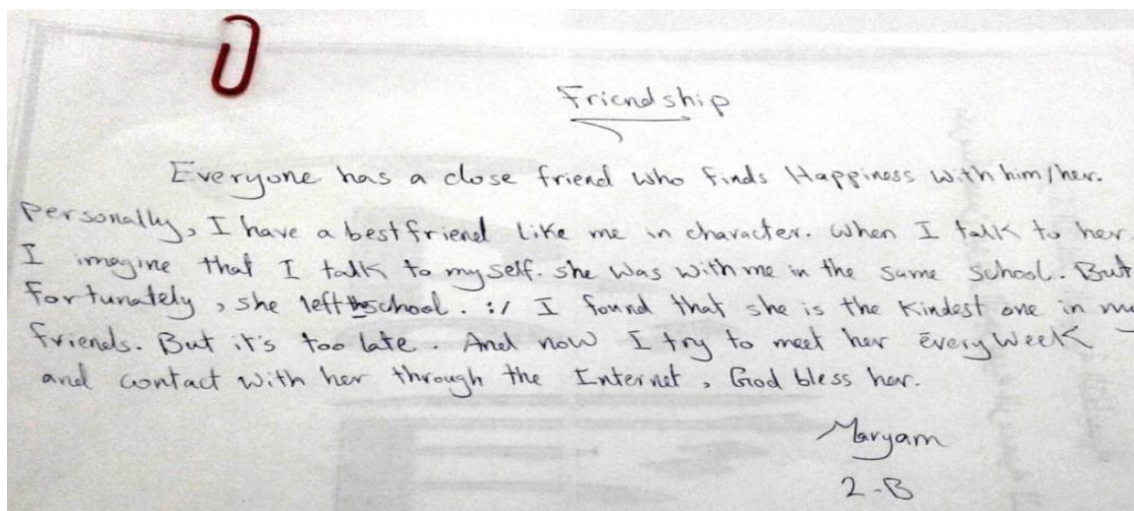 Friendship
Everyone has a close friend who finds Happiness with him/her.
personally, I have a best friend like me in character. when I talk to her.
I imagine that I talk to my self. she was with me in the same school. But
fortunately, she left the school. :/ I found that she is the kindest one in my
friends. But it's too late. And now I try to meet her every week
and contact with her through the Internet, God bless her.
Maryam
2-B